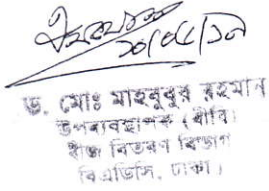 ২০/০৫/১৯
ড. মোঃ মাহবুবুর রহমান
উপব্যবস্থাপক (বীবি)
বীজ বিতরণ বিভাগ
বিএডিসি, ঢাকা।